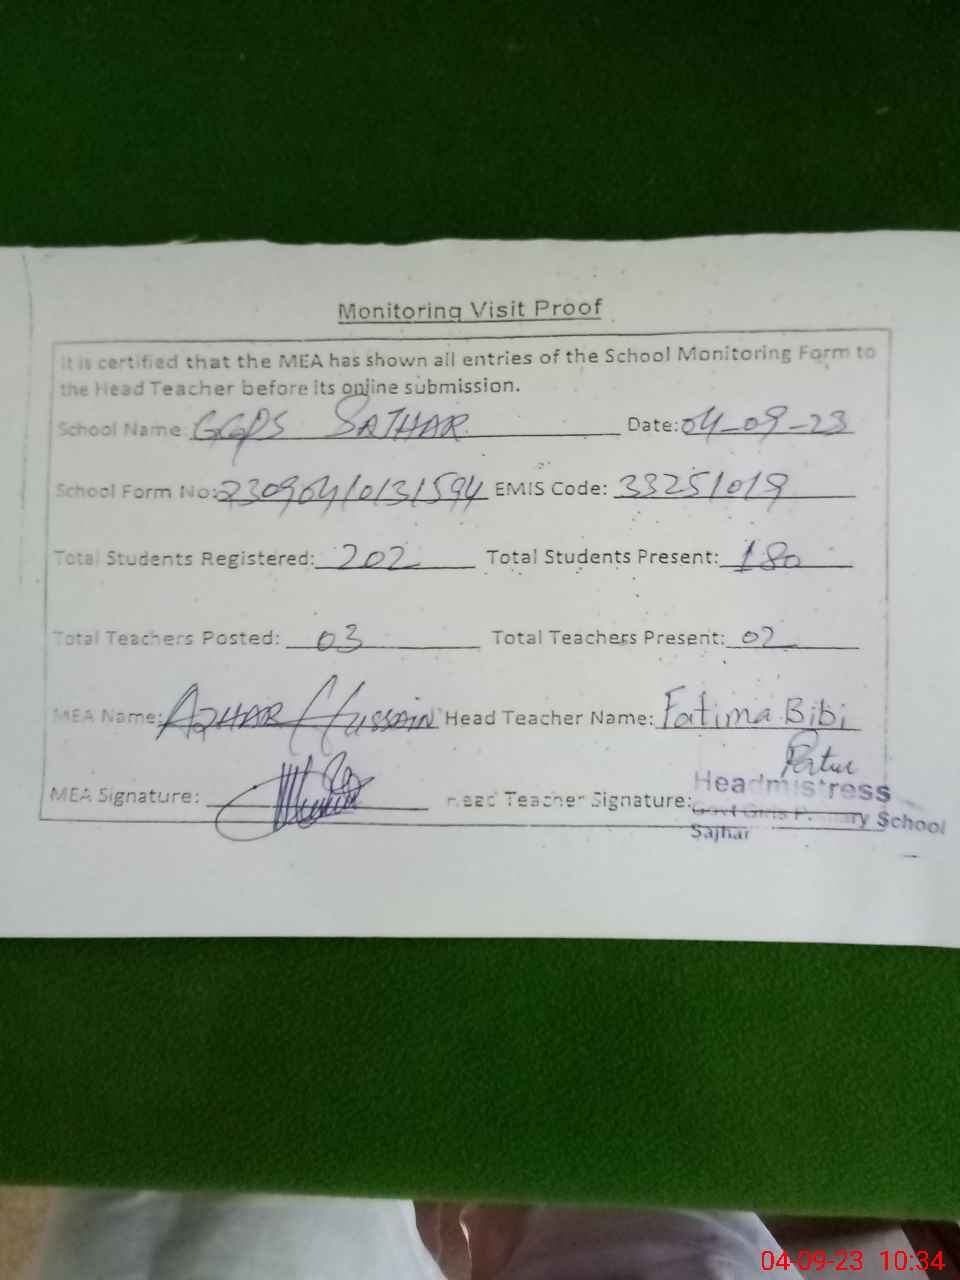 Monitoring Visit Proof
It is certified that the MEA has shown all entries of the School Monitoring Form to
the Head Teacher before its online submission.
School Name: GGPS SAJHAR Date: 04-09-23
School Form No: 23090410131594 EMIS Code: 33251019
Total Students Registered: 202 Total Students Present: 180
Total Teachers Posted: 03 Total Teachers Present: 02
MEA Name: AZHAR HUSSAIN Head Teacher Name: Fatima Bibi
MEA Signature: Head Teacher Signature:
Headmistress
Govt Girls Primary School
Sajhar
04-09-23 10:34